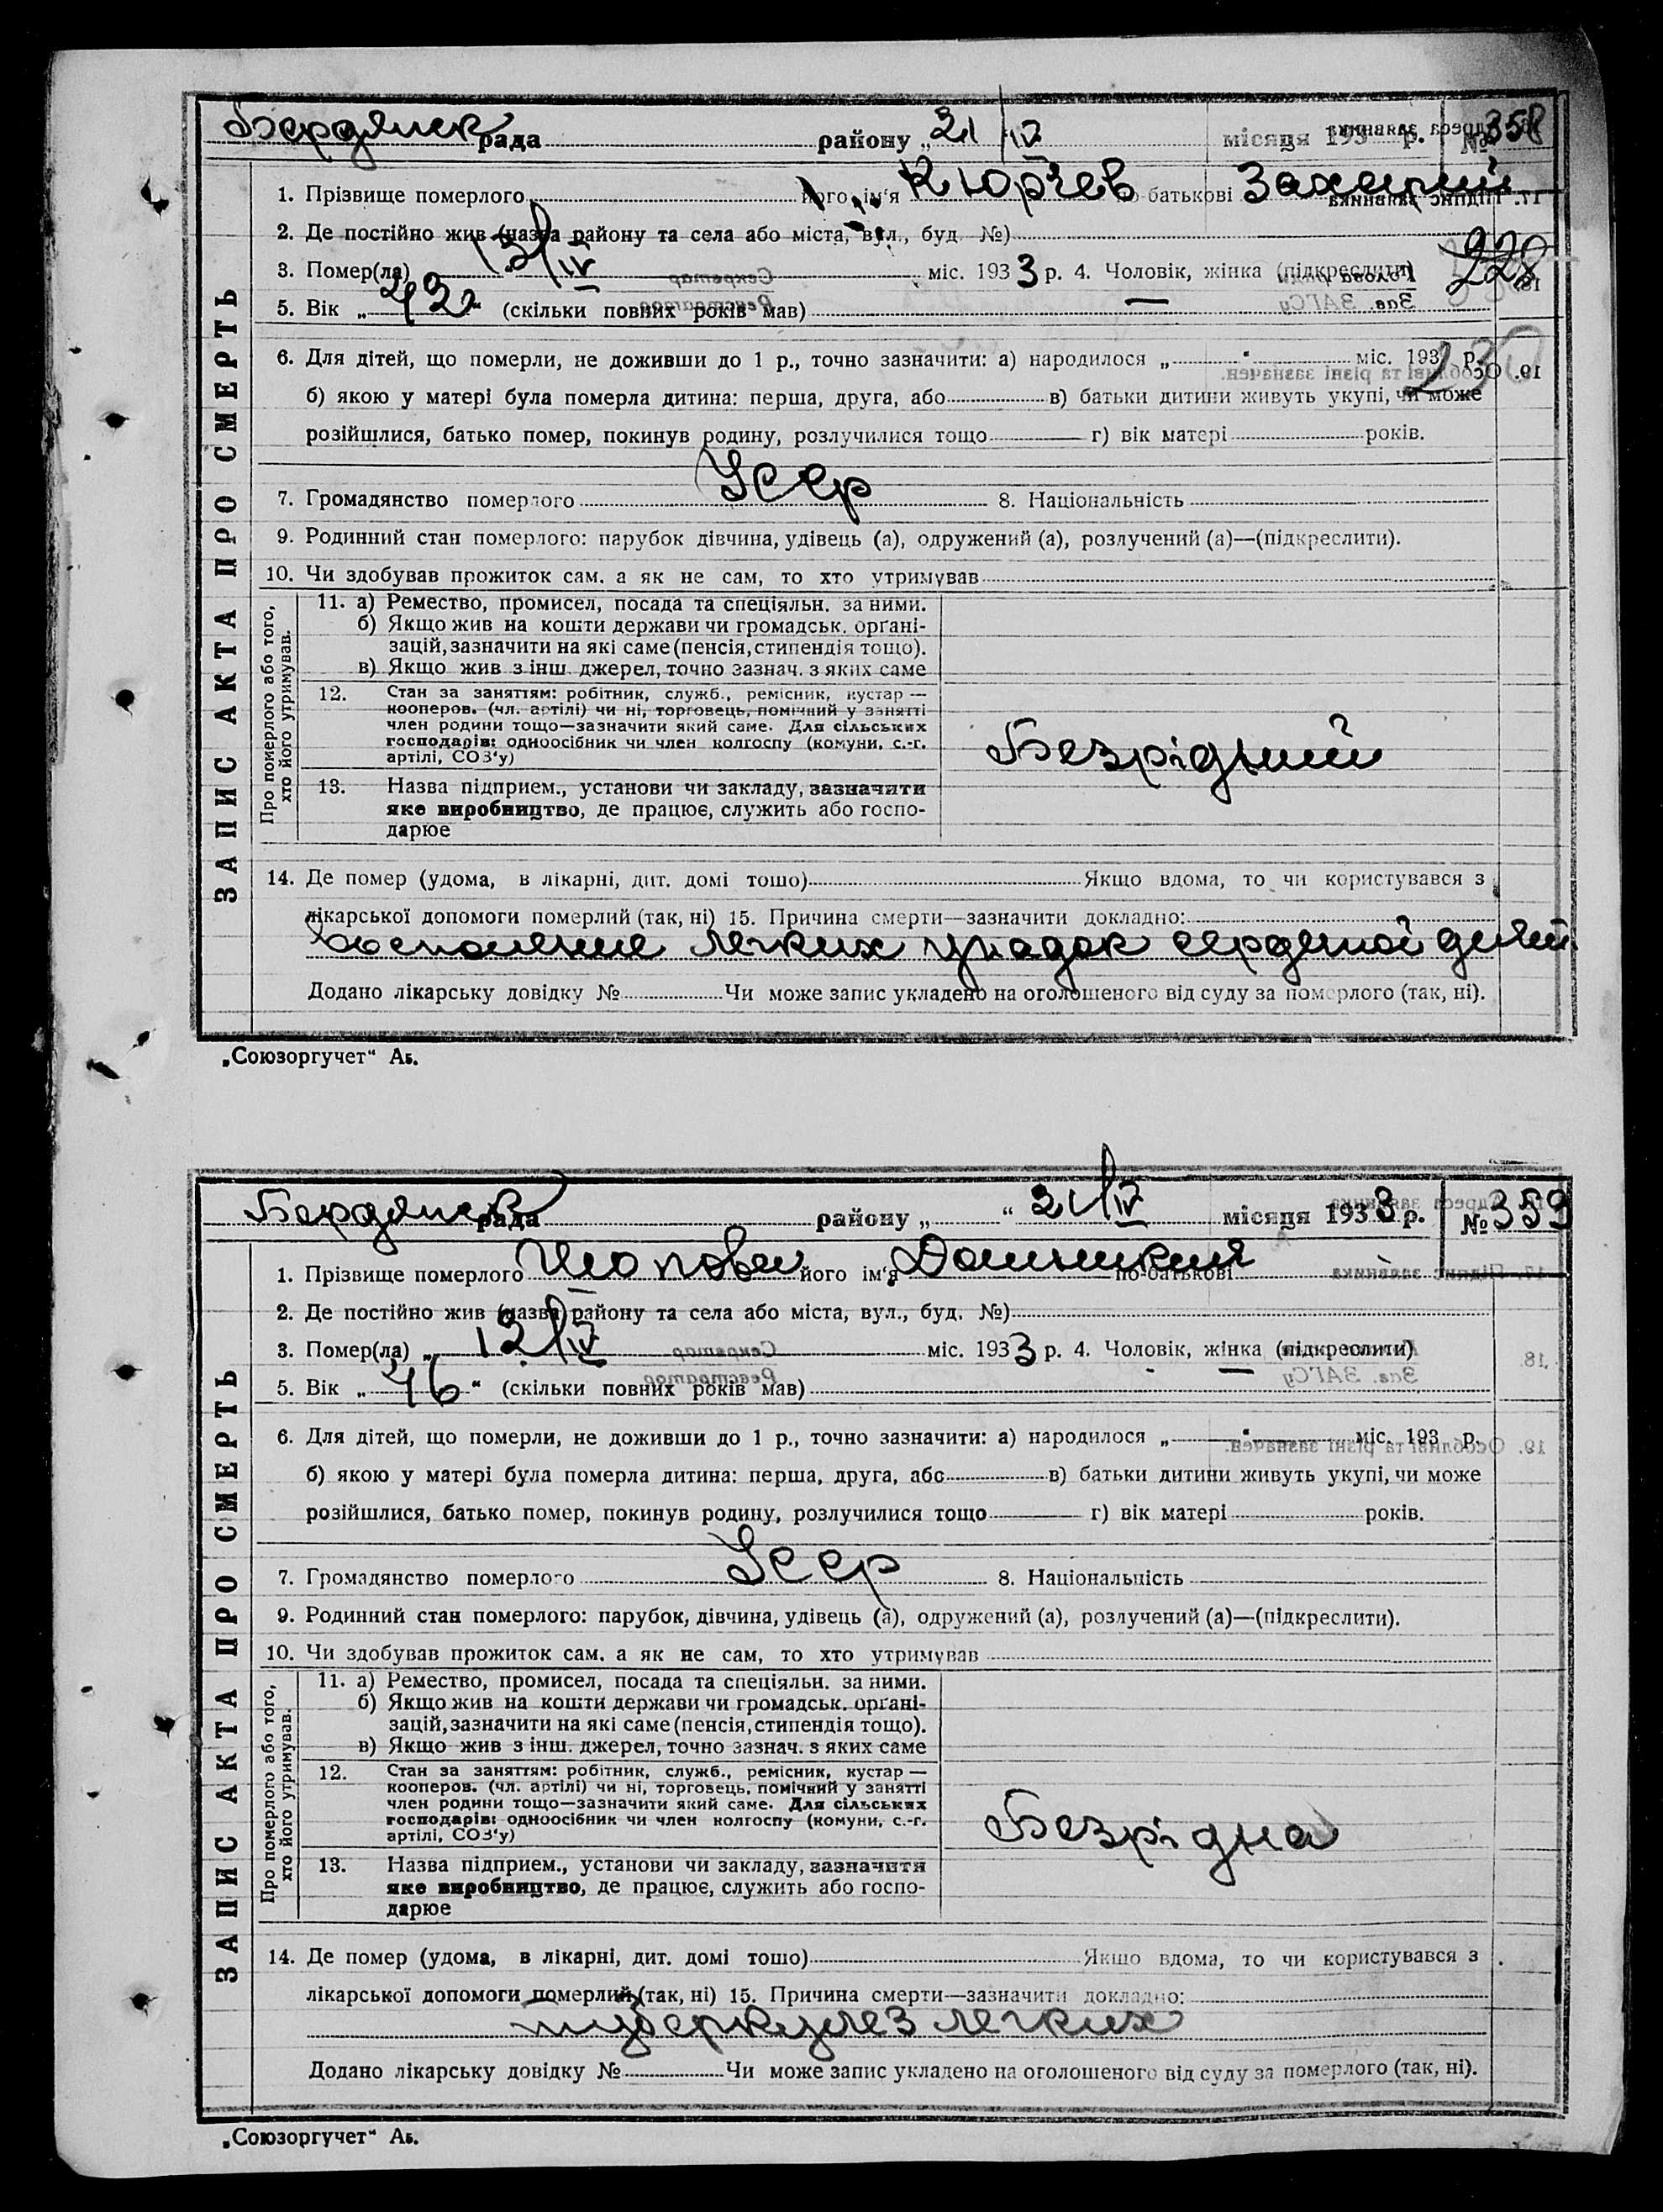 Бердянск рада району „21/IV місяця 193 р. № 358
1. Прізвище померлого його ім'я Кюрчев по-батькові Захарий
2. Де постійно жив (назва району та села або міста, вул., буд. №)
228
3. Помер(ла) „ 13/IV міс. 1933 р. 4. Чоловік, жінка (підкреслити)
5. Вік „ 42 “ (скільки повних років мав)
6. Для дітей, що померли, не доживши до 1 р., точно зазначити: а) народилося „ “ міс. 193 р.
230
б) якою у матері була померла дитина: перша, друга, або в) батьки дитини живуть укупі, чи може
розійшлися, батько помер, покинув родину, розлучилися тощо г) вік матері років.
7. Громадянство померлого Усср 8. Національність
9. Родинний стан померлого: парубок дівчина, удівець (а), одружений (а), розлучений (а)—(підкреслити).
10. Чи здобував прожиток сам. а як не сам, то хто утримував
ЗАПИС АКТА ПРО СМЕРТЬ
Про померлого або того, хто його утримував.
11. а) Ремество, промисел, посада та спеціяльн. за ними.
б) Якщо жив на кошти держави чи громадськ. органі-
зацій, зазначити на які саме (пенсія, стипендія тощо).
в) Якщо жив з інш. джерел, точно зазнач. з яких саме
12. Стан за заняттям: робітник, служб., ремісник, кустар —
кооперов. (чл. артілі) чи ні, торговець, помічний у занятті
член родини тощо—зазначити який саме. Для сільських
господарів: одноосібник чи член колгоспу (комуни, с.-г.
артілі, СОЗ'у)
Безрідний
13. Назва підприєм., установи чи закладу, зазначити
яке виробництво, де працює, служить або госпо-
дарює
14. Де помер (удома, в лікарні, дит. домі тощо) Якщо вдома, то чи користувався з
лікарської допомоги померлий (так, ні) 15. Причина смерти—зазначити докладно:
восполение легких упадок сердечной
Додано лікарську довідку № Чи може запис укладено на оголошеного від суду за померлого (так, ні).
„Союзоргучет“ Аб.
Бердянск рада району „ “ 21/IV місяця 1933 р. № 359
1. Прізвище померлого його ім'я по-батькові
2. Де постійно жив (назва району та села або міста, вул., буд. №)
3. Помер(ла) „ 12/IV міс. 1933 р. 4. Чоловік, жінка (підкреслити)
5. Вік „ 46 “ (скільки повних років мав)
6. Для дітей, що померли, не доживши до 1 р., точно зазначити: а) народилося „ “ міс. 193 р.
б) якою у матері була померла дитина: перша, друга, або в) батьки дитини живуть укупі, чи може
розійшлися, батько помер, покинув родину, розлучилися тощо г) вік матері років.
7. Громадянство померлого Усср 8. Національність
9. Родинний стан померлого: парубок, дівчина, удівець (а), одружений (а), розлучений (а)—(підкреслити).
10. Чи здобував прожиток сам. а як не сам, то хто утримував
ЗАПИС АКТА ПРО СМЕРТЬ
Про померлого або того, хто його утримував.
11. а) Ремество, промисел, посада та спеціяльн. за ними.
б) Якщо жив на кошти держави чи громадськ. органі-
зацій, зазначити на які саме (пенсія, стипендія тощо).
в) Якщо жив з інш. джерел, точно зазнач. з яких саме
12. Стан за заняттям: робітник, служб., ремісник, кустар —
кооперов. (чл. артілі) чи ні, торговець, помічний у занятті
член родини тощо—зазначити який саме. Для сільських
господарів: одноосібник чи член колгоспу (комуни, с.-г.
артілі, СОЗ'у)
Безрідна
13. Назва підприєм., установи чи закладу, зазначити
яке виробництво, де працює, служить або госпо-
дарює
14. Де помер (удома, в лікарні, дит. домі тощо) Якщо вдома, то чи користувався з
лікарської допомоги померлий (так, ні) 15. Причина смерти—зазначити докладно:
туберкулез легких
Додано лікарську довідку № Чи може запис укладено на оголошеного від суду за померлого (так, ні).
„Союзоргучет“ Аб.